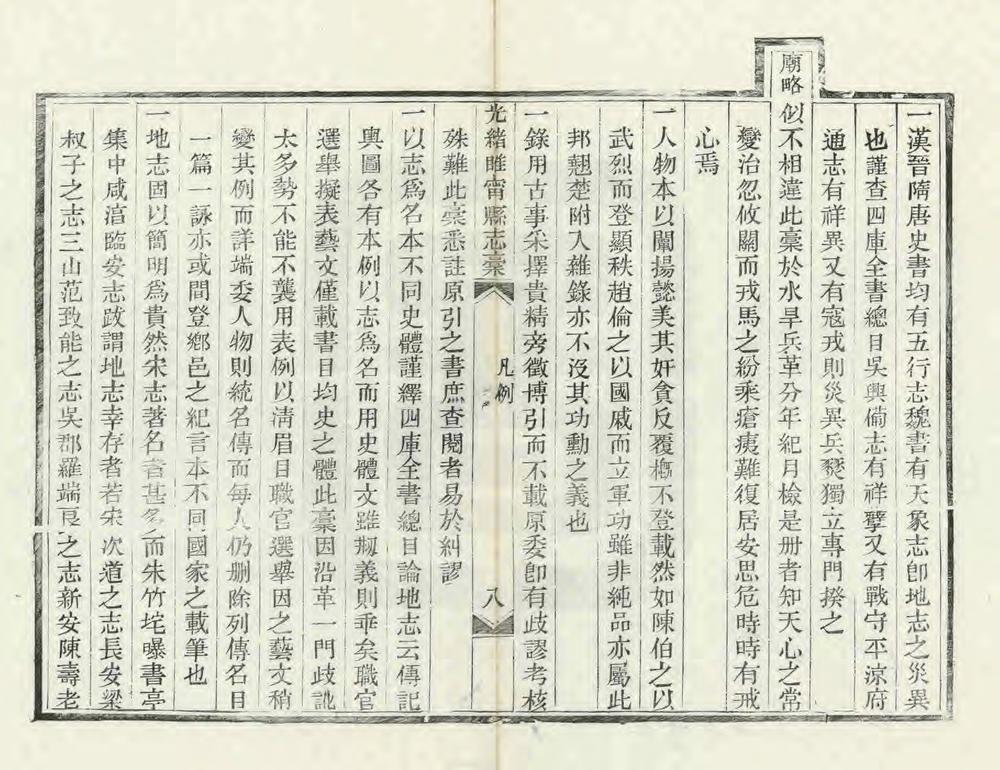 一漢晉隋唐史書均有五行志魏書有天象志卽地志之災異
也謹查四庫全書總目吳興備志有祥孽又有戰守平涼府
通志有祥異又有寇戎則災異兵燹獨立專門揆之
廟略似不相違此稾於水旱兵革分年紀月檢是册者知天心之常
變治忽攸關而戎馬之紛乘瘡痍難復居安思危時時有戒
心焉
一人物本以闡揚懿美其奸貪反覆槪不登載然如陳伯之以
武烈而登顯秩趙倫之以國戚而立軍功雖非純品亦屬此
邦翹楚附入雜錄亦不沒其功勳之義也
一錄用古事采擇貴精旁徵博引而不載原委卽有歧謬考核
殊難此稾悉註原引之書庶查閱者易於糾謬
光緒睢甯縣志稾
凡例
八
一以志爲名本不同史體謹繹四庫全書總目論地志云傳記
輿圖各有本例以志爲名而用史體文雖剏義則乖矣職官
選舉擬表藝文僅載書目均史之體此稾因沿革一門歧訛
太多勢不能不襲用表例以淸眉目職官選舉因之藝文稍
變其例而詳端委人物則統名傳而每人仍删除列傳名目
一篇一詠亦或間登鄉邑之紀言本不同國家之載筆也
一地志固以簡明爲貴然宋志著名者甚多而朱竹垞曝書亭
集中咸淳臨安志跋謂地志幸存者若宋次道之志長安梁
叔子之志三山范致能之志吳郡羅端良之志新安陳壽老